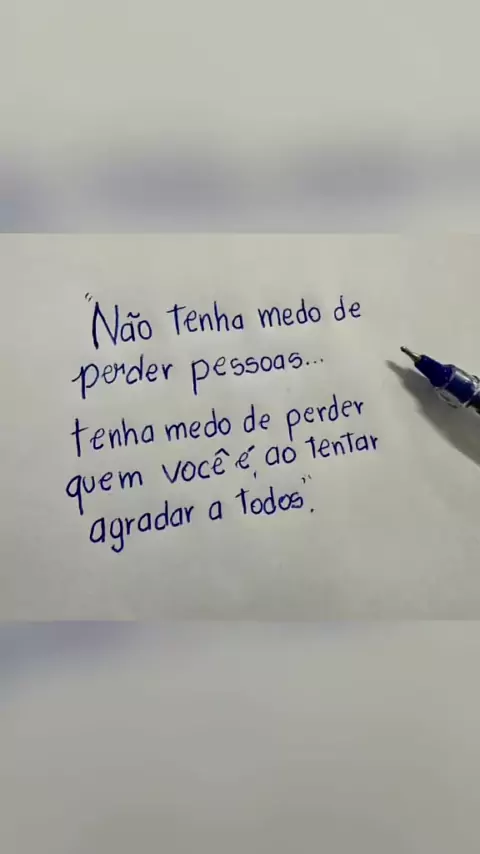 "Não tenha medo de
perder pessoas...
tenha medo de perder
quem você é, ao tentar
agradar a todos".